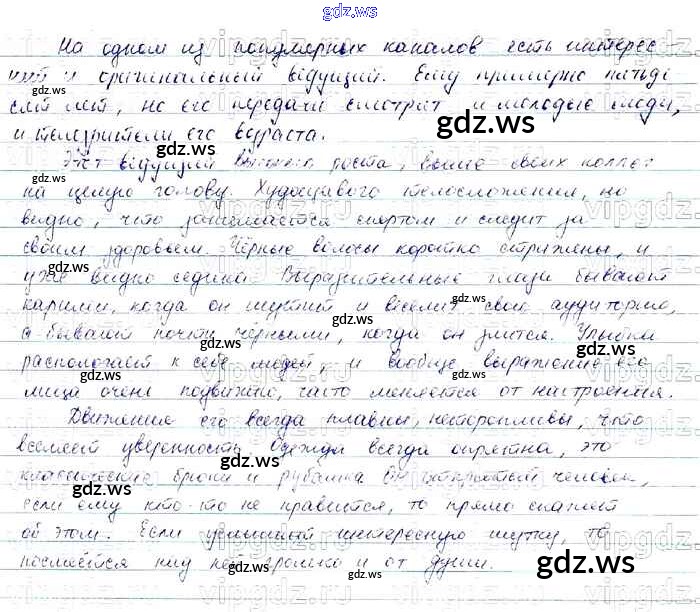 gdz.ws
На одном из популярных каналов есть интерес
ный и оригинальный ведущий. Ему примерно пятьде
сят лет, но его передачи смотрят и молодые люди,
и телезрители его возраста.
Этот ведущий высокого роста, выше своих коллег
на целую голову. Худощавого телосложения, но
видно, что занимается спортом и следит за
своим здоровьем. Чёрные волосы коротко стрижены, и
уже видно седина. Выразительные глаза бывают
карими, когда он шутит и веселит свою аудиторию,
а бывают почти чёрными, когда он злится. Улыбка
располагает к себе людей, и вообще выражение его
лица очень подвижно, часто меняется от настроения.
Движения его всегда плавны, неторопливы, что
вселяет уверенность. Одежда всегда опрятна, это
классические брюки и рубашка. Он открытый человек,
если ему кто-то не нравится, то прямо скажет
об этом. Если услышит интересную шутку, то
посмеётся над ней громко и от души.